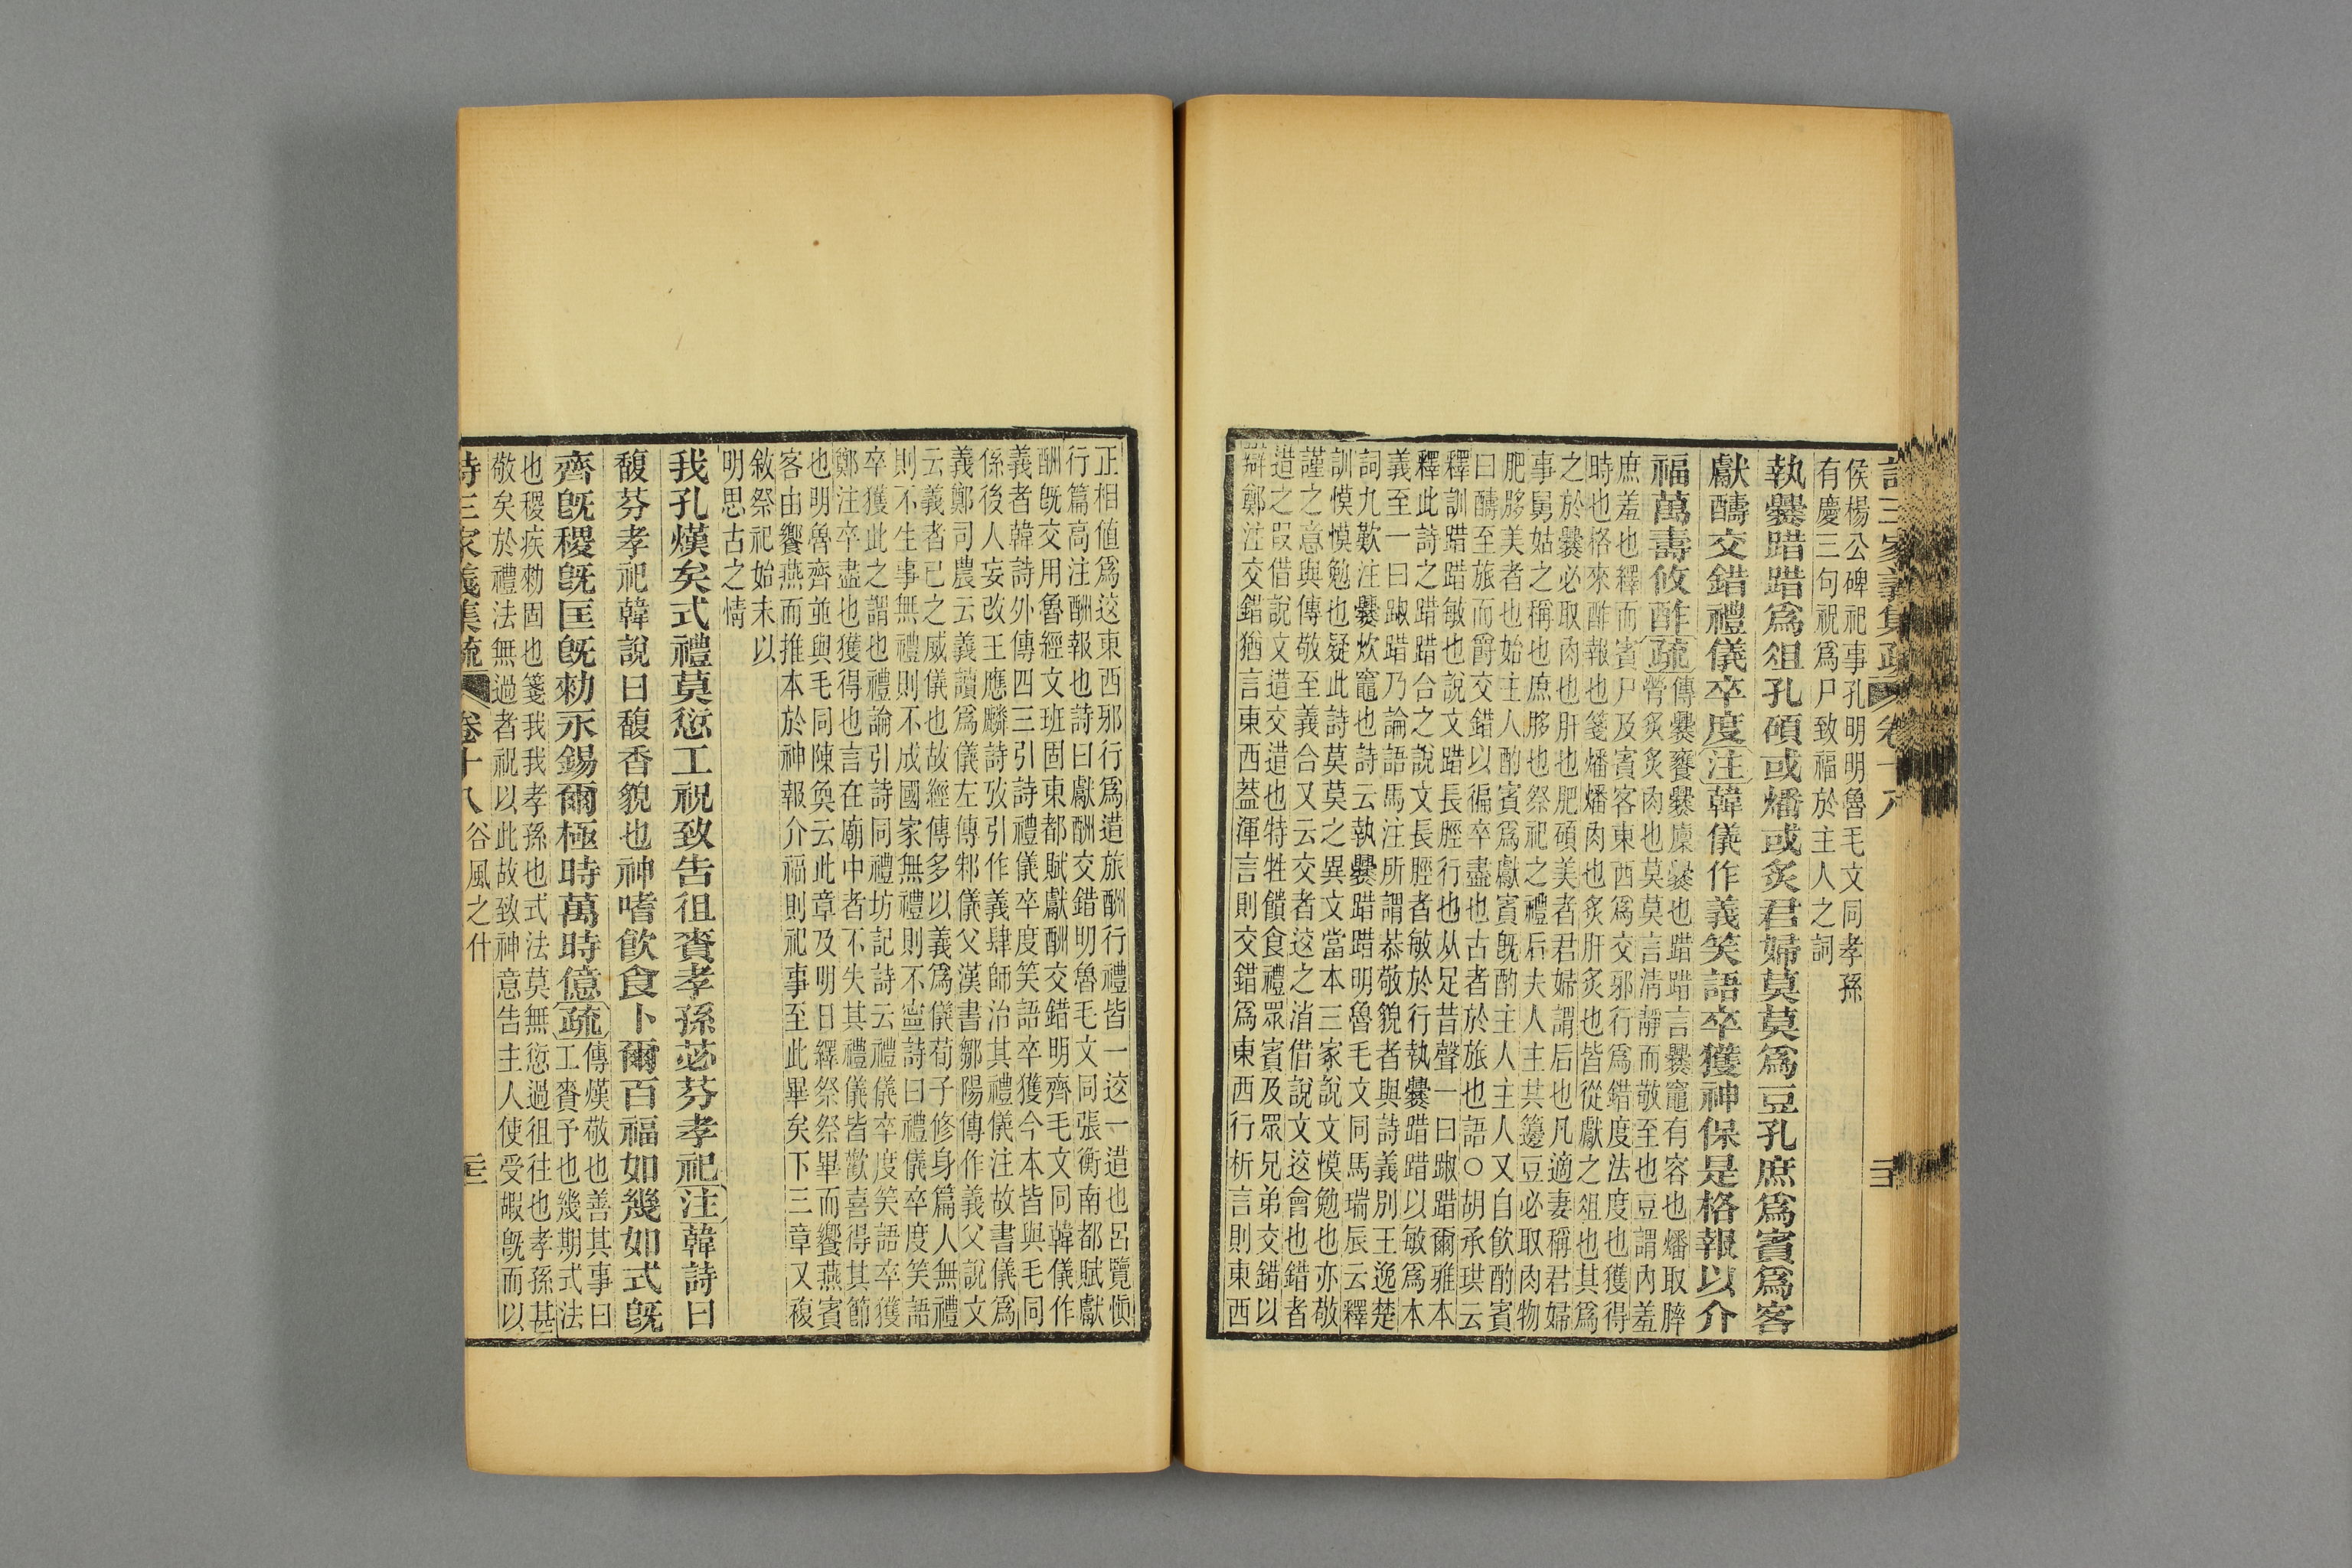 侯楊公碑祀事孔明明魯毛文同孝孫
有慶三句祝爲尸致福於主人之詞
執爨踖踖爲俎孔碩或燔或炙君婦莫莫爲豆孔庶爲賓爲客
獻醻交錯禮儀卒度注韓儀作義笑語卒獲神保是格報以介
福萬壽攸酢疏傳爨饔爨廩爨也踖踖言爨竈有容也燔取膟
膋炙炙肉也莫莫言清靜而敬至也豆謂內羞
庶羞也繹而賓尸及賓客東西爲交邪行爲錯度法度也獲得
時也格來酢報也箋燔燔肉也炙肝炙也皆從獻之俎也其爲
之於爨必取肉也肝也肥碩美者君婦謂后也凡適妻稱君婦
事舅姑之稱也庶胳也祭祀之禮后夫人主其籩豆必取肉物
肥胳美者也始主人酌賓爲獻賓旣酌主人主人又自飲酌賓
曰醻至旅而爵交錯以徧卒盡也古者於旅也語○胡承珙云
釋訓踖踖敏也說文踖長脛行也从足昔聲一曰踧踖爾雅本
釋此詩之踖踖合之說文長脛者敏於行執爨踖踖以敏爲本
義至一曰踧踖乃論語馬注所謂恭敬貌者與詩義別王逸楚
詞九歎注爨炊竈也詩云執爨踖踖明魯毛文同馬瑞辰云釋
訓慔慔勉也疑此詩莫莫之異文當本三家說文慔勉也亦敬
謹之意與傳敬至義合又云交者䢒之消借說文䢒會也錯者
䢒之叚借說文䢒交䢒也特牲饋食禮眾賓及眾兄弟交錯以
辯鄭注交錯猶言東西葢渾言則交錯爲東西行析言則東西
正相値爲䢒東西邪行爲䢒旅酬行禮皆一䢒一䢒也呂覽愼
行篇高注酬報也詩曰獻酬交錯明魯毛文同張衡南都賦獻
酬旣交用魯經文班固東都賦獻酬交錯明齊毛文同韓儀作
義者韓詩外傳四三引詩禮儀卒度笑語卒獲今本皆與毛同
係後人妄改王應麟詩攷引作義肆師治其禮儀注故書儀爲
義鄭司農云義讀爲儀左傳邾儀父漢書鄒陽傳作義父說文
云義者己之威儀也故經傳多以義爲儀荀子修身篇人無禮
則不生事無禮則不成國家無禮則不寧詩曰禮儀卒度笑語
卒獲此之謂也禮論引詩同禮坊記詩云禮儀卒度笑語卒獲
鄭注卒盡也獲得也言在廟中者不失其禮儀皆歡喜得其節
也明魯齊並與毛同陳奐云此章及明日繹祭祭畢而饗燕賓
客由饗燕而推本於神報介福則祀事至此畢矣下三章又複
敘祭祀始末以
明思古之情
我孔熯矣式禮莫愆工祝致告徂賚孝孫苾芬孝祀注韓詩曰
馥芬孝祀韓說曰馥香貌也神嗜飲食卜爾百福如幾如式旣
齊旣稷旣匡旣勑永錫爾極時萬時億疏傳熯敬也善其事曰
工賚予也幾期式法
也稷疾勑固也箋我我孝孫也式法莫無愆過徂往也孝孫甚
敬矣於禮法無過者祝以此故致神意告主人使受嘏旣而以
詩三家義集疏 卷十八 谷風之什